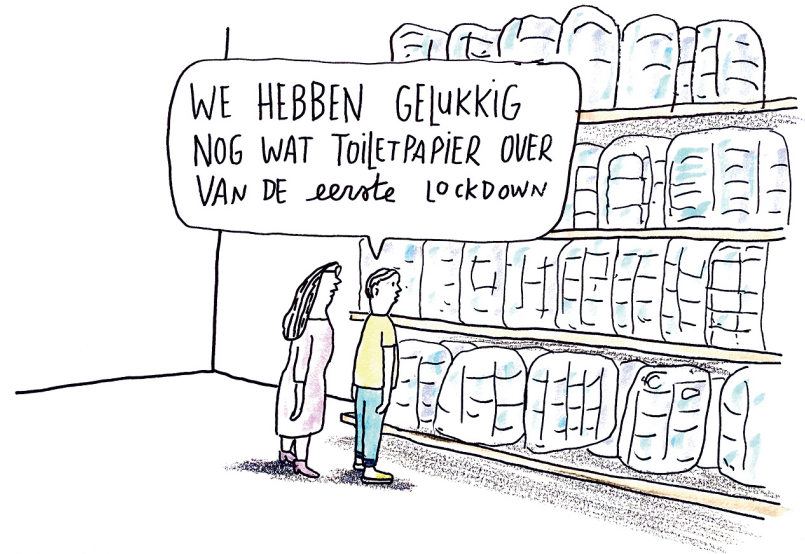 WE HEBBEN GELUKKIG
NOG WAT TOILETPAPIER OVER
VAN DE eerste LOCKDOWN